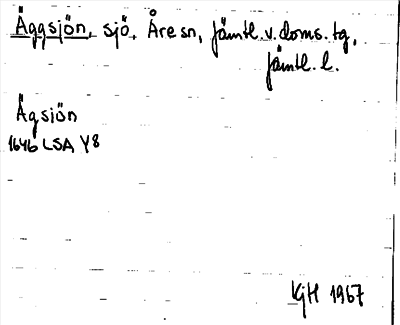 Äggsjön, sjö, Åre sn, Jämtl. v. doms. tg,
Jämtl. l.
Ägsjön
1646 LSA Y8
KjH 1967